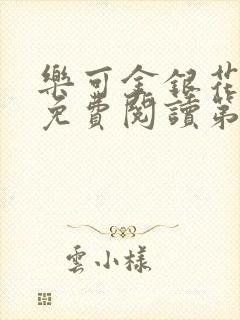 樂可金銀花
免費閱讀第
雲小樣